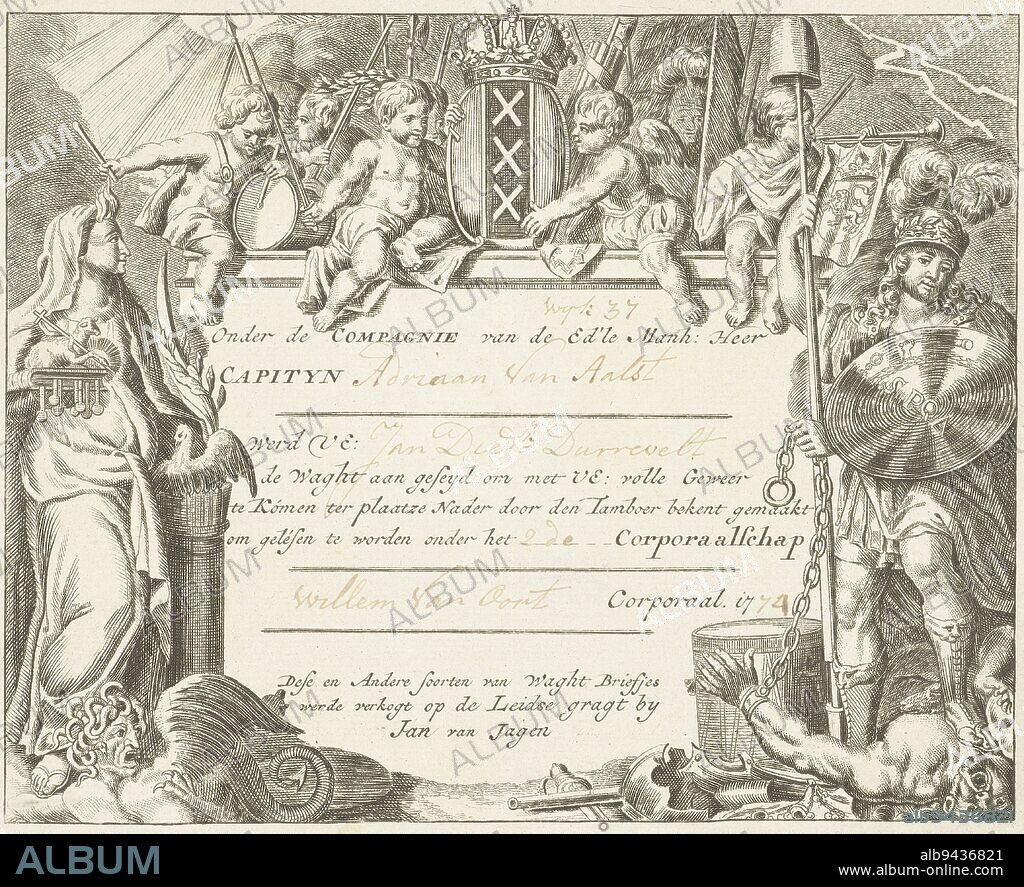 wyk 37
Onder de COMPAGNIE van de Ed'le Manh: Heer
CAPITYN Adriaan Van Aalst
Werd VE: Jan Died: Durrevelt
de Waght aan geseyd om met VE: volle Geweer
te Kómen ter plaatze Nader door den Tamboer bekent gemaakt
om gelésen te worden onder het 2de Corporaalschap
Willem Van Oort Corporaal. 1772
Dese en Andere soorten van Waght Briefjes
werde verkogt op de Leidse gragt by
Jan van Jagen
ALBUM
alb9436821
www.album-online.com